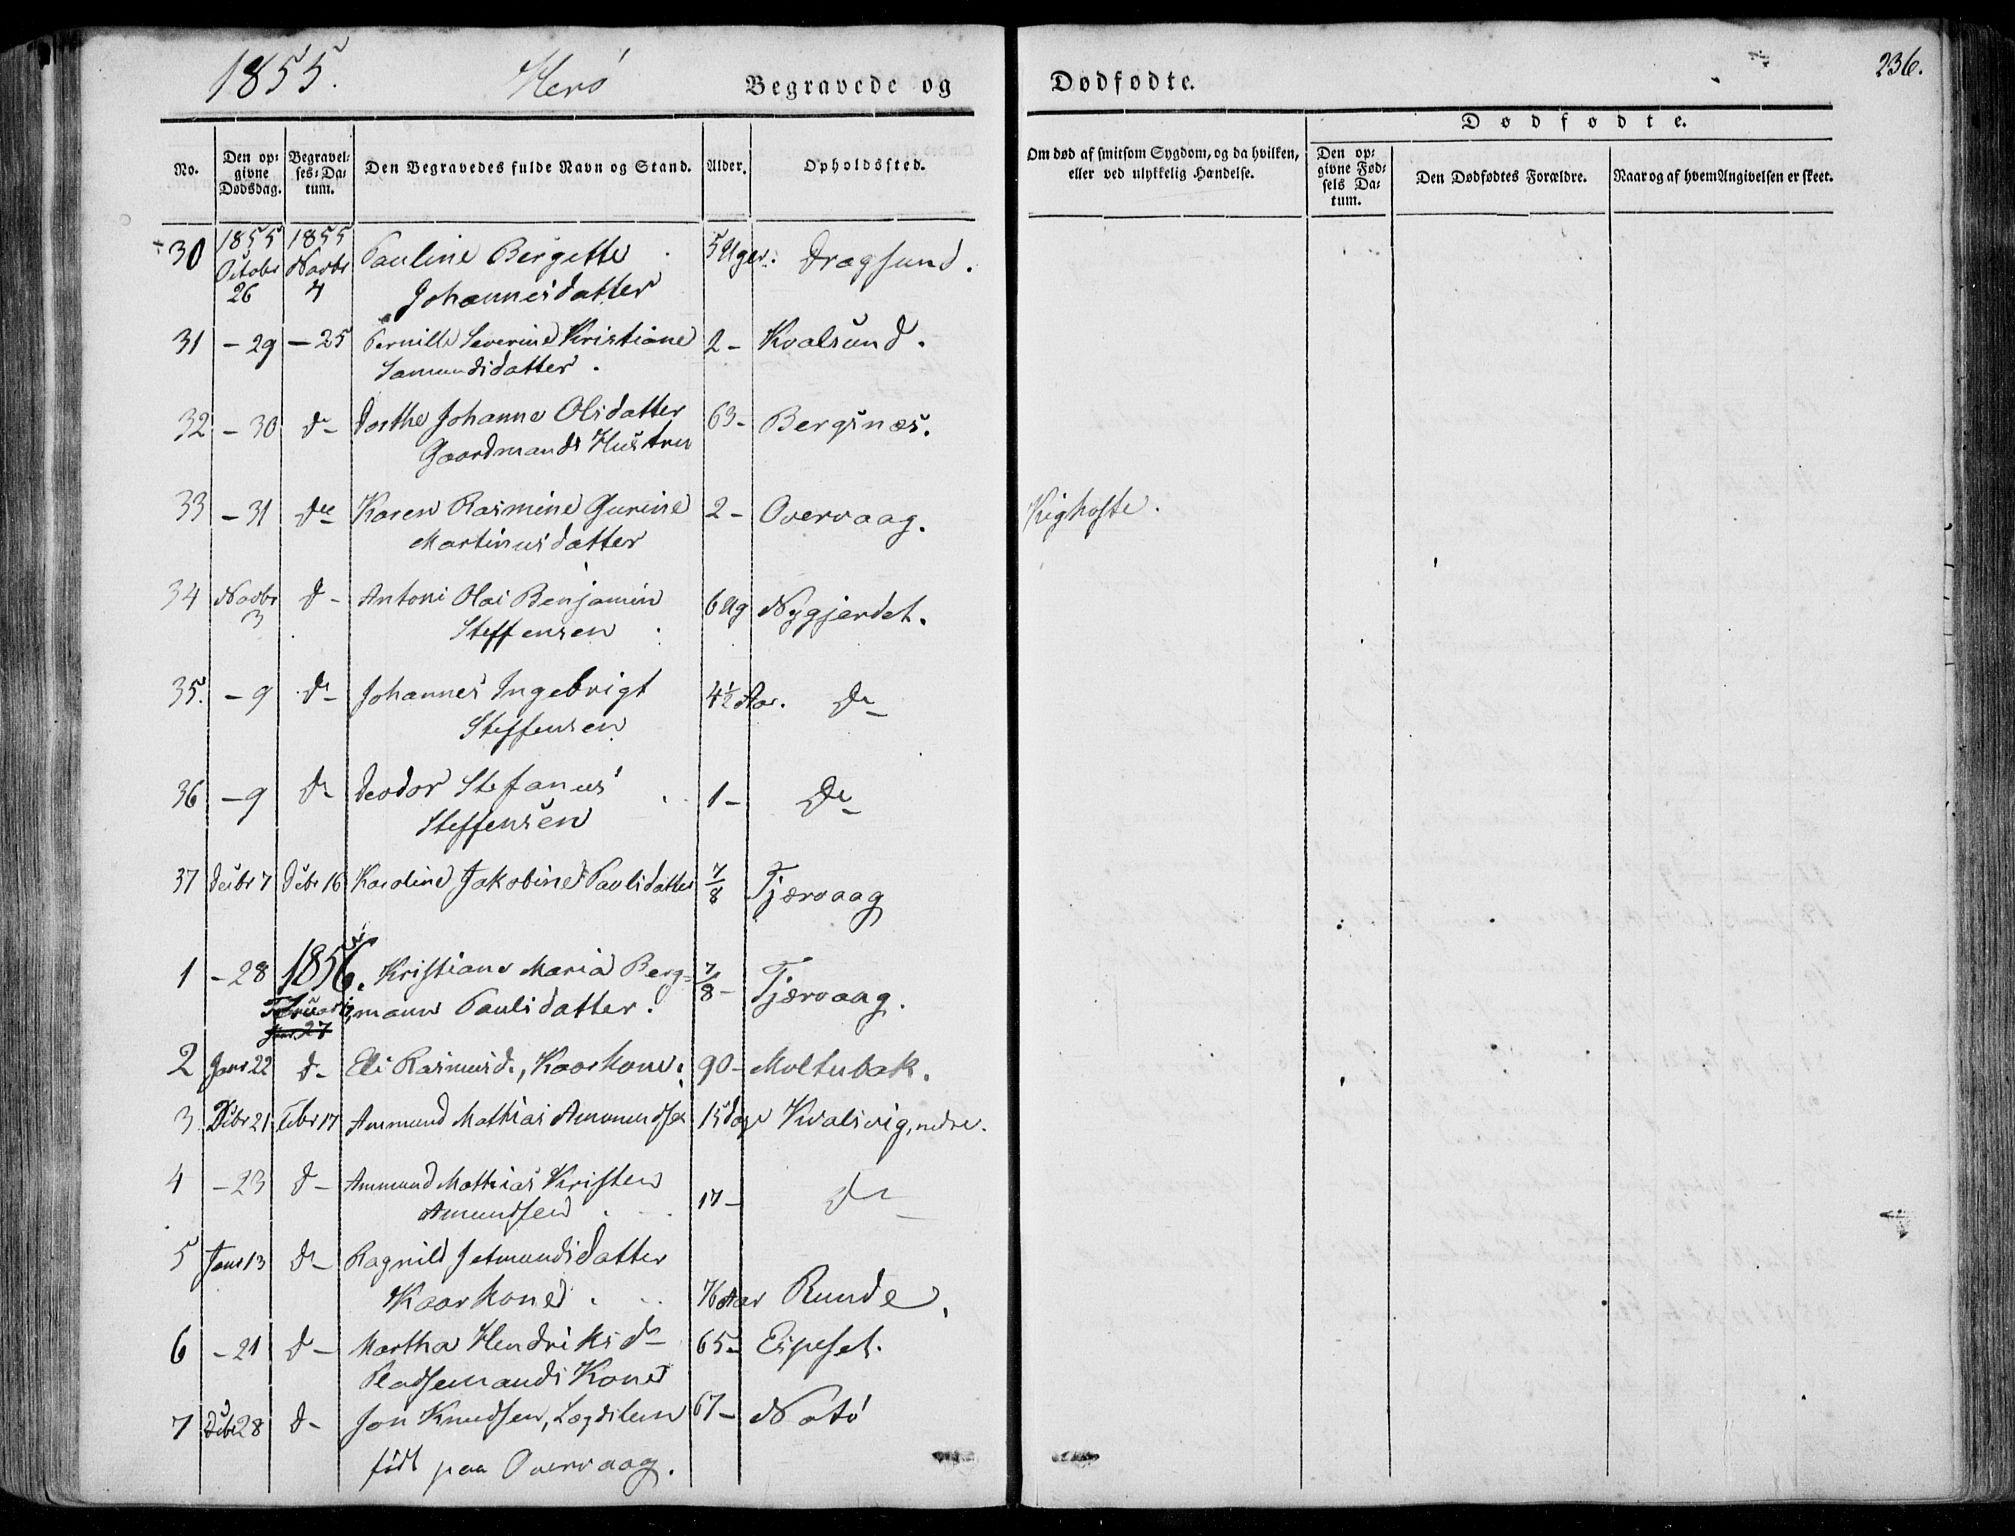 1855. Herö Begravede og Dødfødte. 236.
Dødfødte.
No. Den opgivne Dødsdag. Begravelses-Datum. Den Begravedes fulde Navn og Stand. Alder. Opholdssted. Om død af smitsom Sygdom, og da hvilken, eller ved ulykkelig Hændelse. Den opgivne Fødsels Datum. Den Dødfødtes Forældre. Naar og af hvem Angivelsen er skeet.
30 1855 Octobr 26 1855 Novbr 4 Pauline Bergette 5 Uger. Dragsund.
Johannesdatter
31 - 29 - 25 Pernille Severine Kristiane 2 - Kvalsund.
Samundsdatter.
32 - 30 d - Dorthe Johanne Olsdatter 63 - Bergsnæs.
Gaardmands Hustru
33 - 31 do Karen Rasmine Gurine 2 - Overvaag. Kighoste.
Martinusdatter
34 Novbr 3 d - Antoni Olai Benjamin 6 Ug Nygjerdet.
Steffensen
35. - 9 d - Johannes Ingebrigt 4½ Aar. do
Steffensen
36 - 9 d - Deodor Stefanus 1 - do
Steffensen
37 Decbr 7 Debr 16 Karoline Jakobine Paulsdatter 7/8 Tjærvaag
1 - 28 1856. Kristiane Maria Berg- 7/8 - Tjærvaag.
Februarij mann Paulsdatter.
Janr 27
2 Janr 22 d - Eli Rasmusd., Kaarkone. 90 - Moltubak.
3. Debr 21 Febr 17 Ammund Mathias Ammundsen 15 dage Kvalsvig, nedre.
4 - 23 d - Ammund Mathias Kristen 17 - do
Amundsen
5 Janr 13 d - Ragnild Jetmundsdatter
Kaarkone. 76 Aar Runde.
6 - 21 d - Martha Hendriksd. 65 - Eipeset.
Pladsemands Kone
7 Debr 28 d - Jon Knudsen, Lægdslem 67 - Notö
født paa Overvaag.